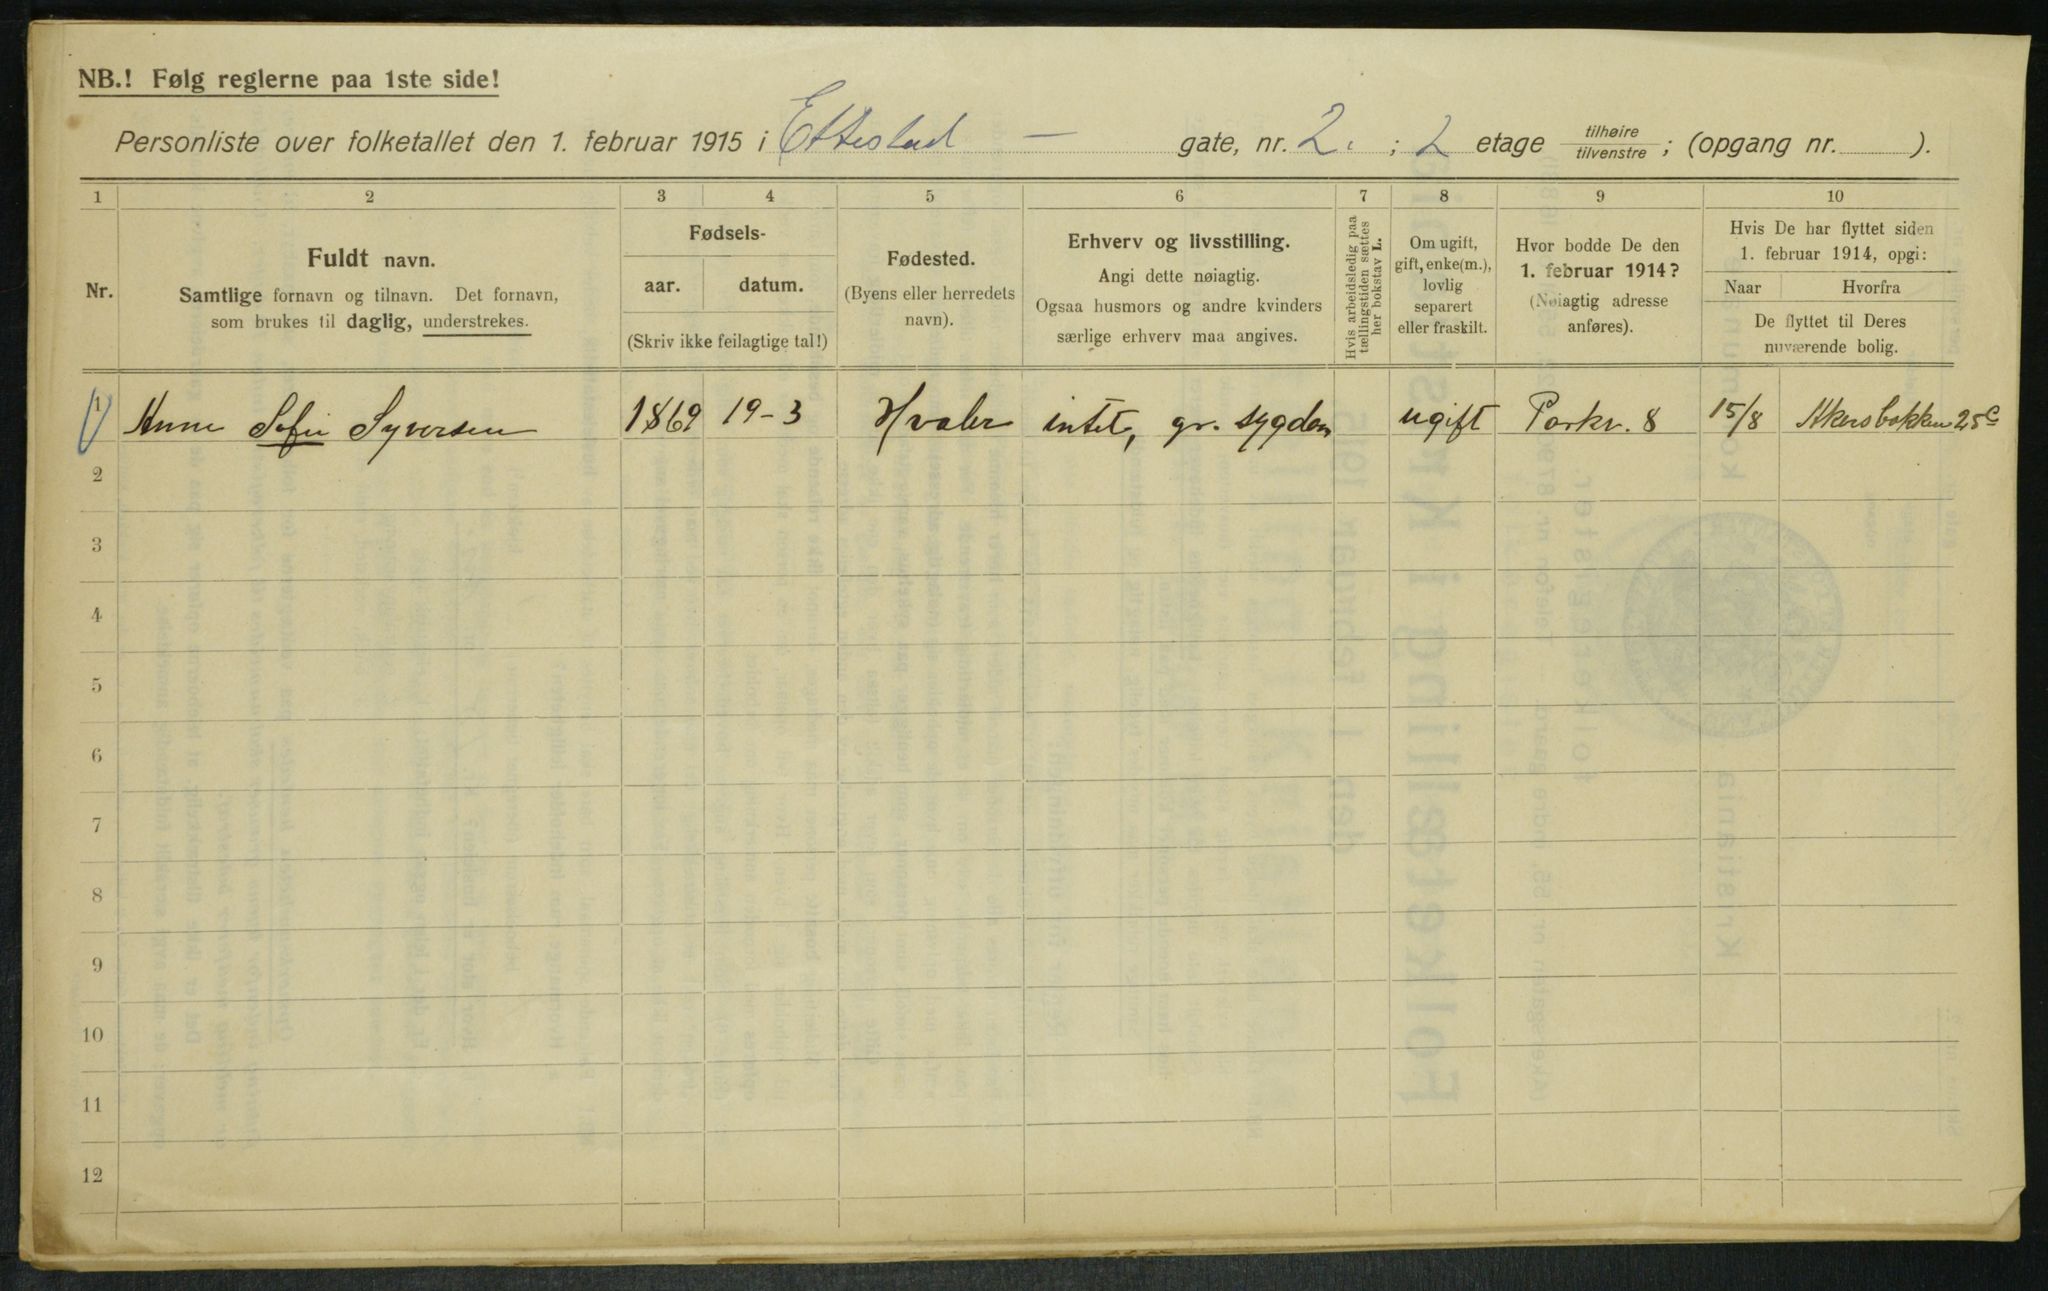 NB.! Følg reglerne paa 1ste side!
Personliste over folketallet den 1. februar 1915 i Ettestad — gate, nr. 2. ; 2 etage tilhøire / tilvenstre ; (opgang nr. ).
1 2 3 4 5 6 7 8 9 10
Nr.
Fuldt navn.
Samtlige fornavn og tilnavn. Det fornavn,
som brukes til daglig, understrekes.
Fødsels-
aar. datum.
(Skriv ikke feilagtige tal!)
Fødested.
(Byens eller herredets
navn).
Erhverv og livsstilling.
Angi dette nøiagtig.
Ogsaa husmors og andre kvinders
særlige erhverv maa angives.
Hvis arbeidsledig paa
tællingstiden sættes
her bokstav L.
Om ugift,
gift, enke(m.),
lovlig
separert
eller fraskilt.
Hvor bodde De den
1. februar 1914?
(Nøiagtig adresse
anføres).
Hvis De har flyttet siden
1. februar 1914, opgi:
Naar Hvorfra
De flyttet til Deres
nuværende bolig.
1 Anne Sofie Syversen 1869 19-3 Hvaler intet, gr. sygdom ugift Parkv. 8 15/8 Akersbakken 25c
2
3
4
5
6
7
8
9
10
11
12